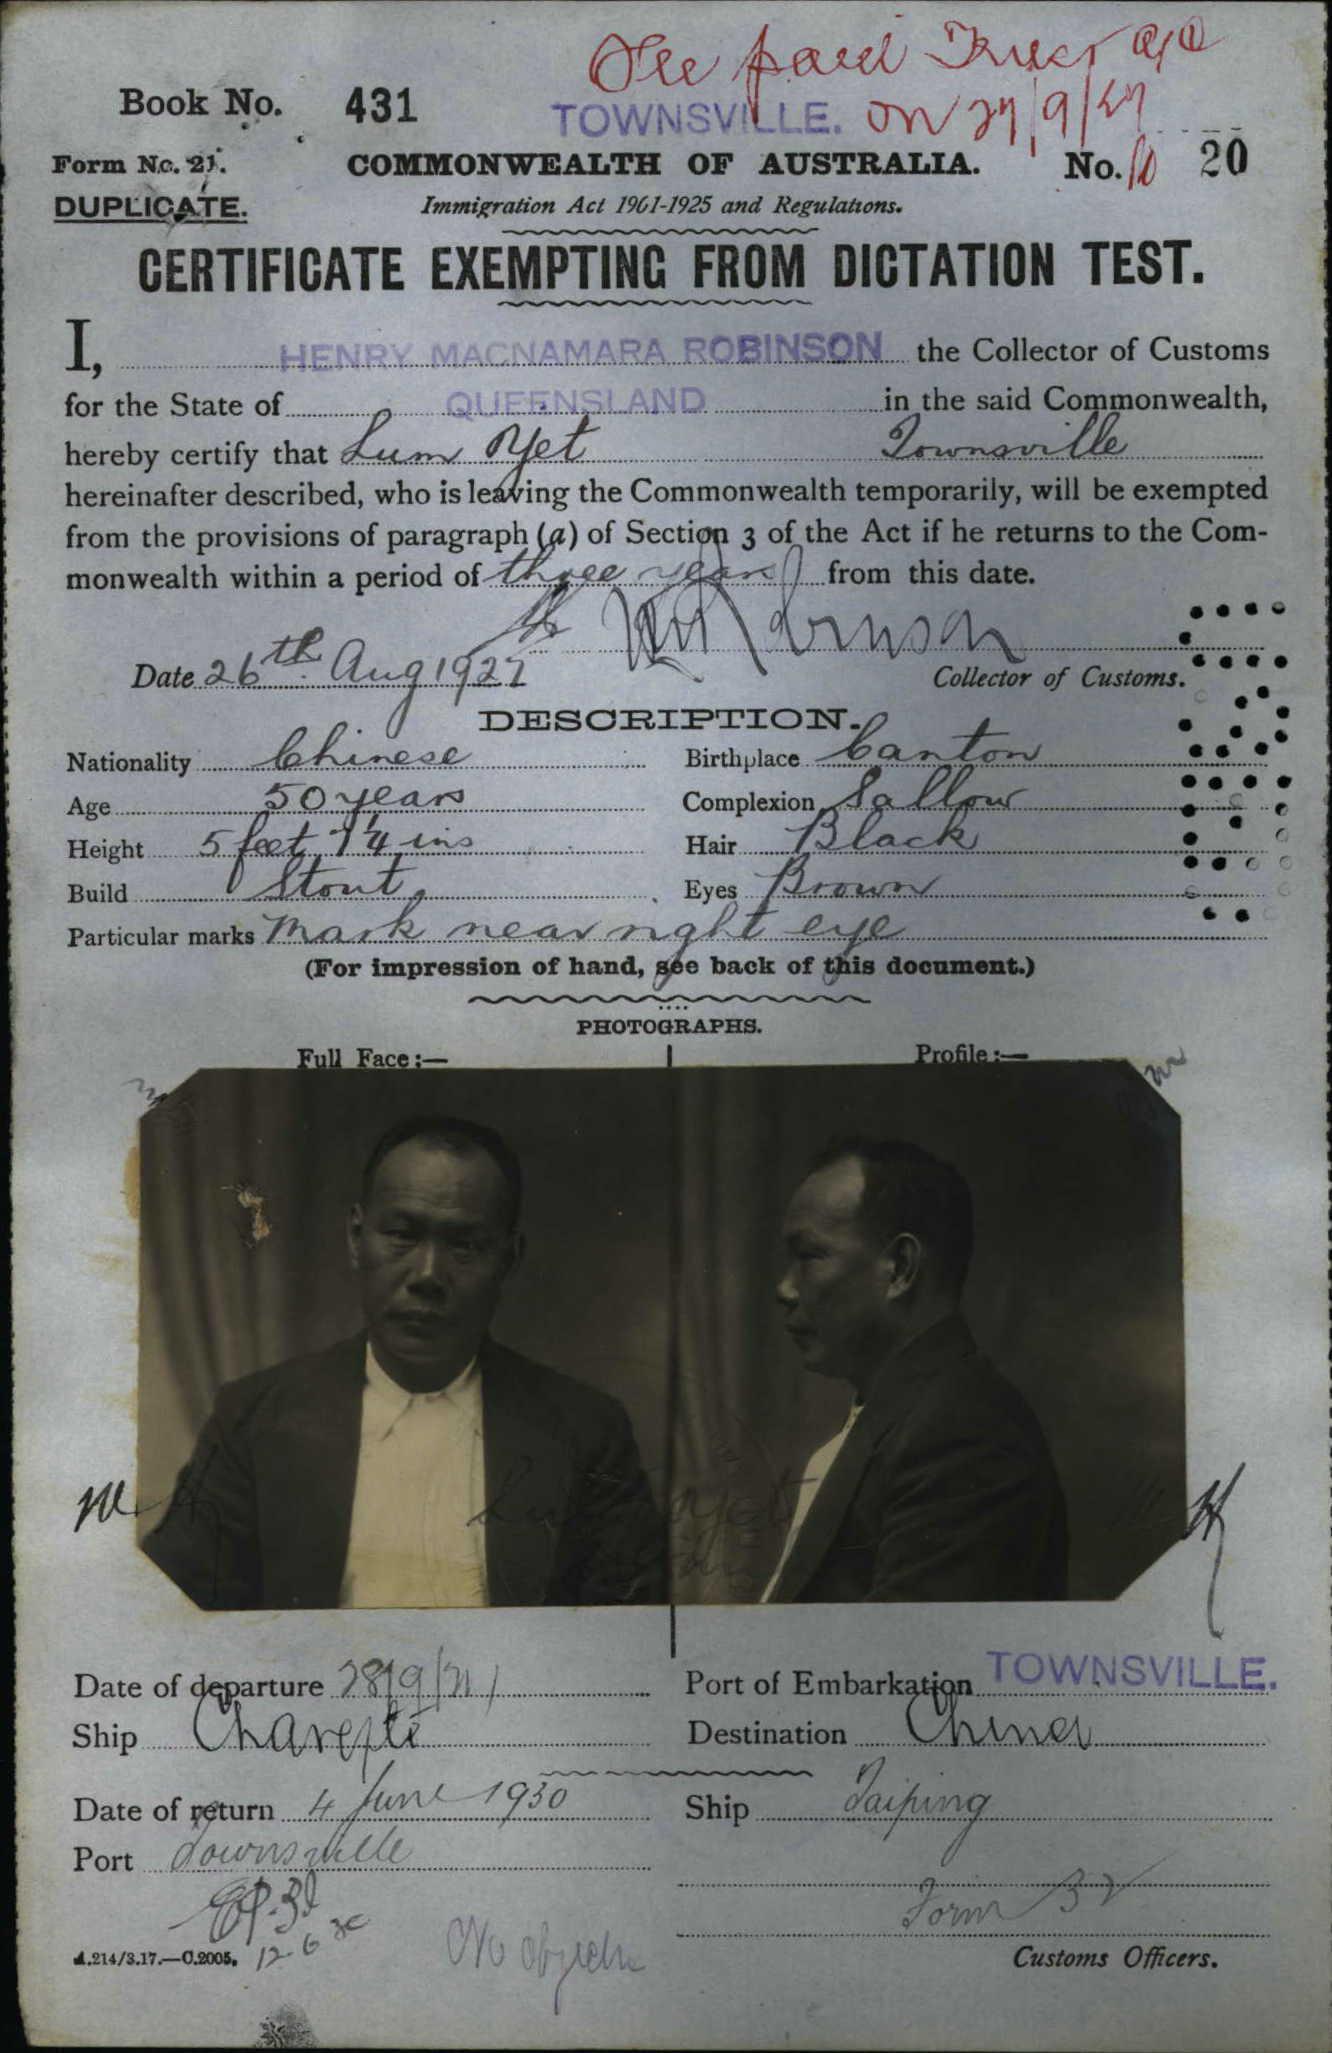 Fee paid Trust a/c
Book No. 431 TOWNSVILLE. on 27/9/27
Form No. 21. COMMONWEALTH OF AUSTRALIA. No. 20
DUPLICATE. Immigration Act 1901-1925 and Regulations.
CERTIFICATE EXEMPTING FROM DICTATION TEST.
I, HENRY MACNAMARA ROBINSON the Collector of Customs
for the State of QUEENSLAND in the said Commonwealth,
hereby certify that Lum Yet Townsville
hereinafter described, who is leaving the Commonwealth temporarily, will be exempted
from the provisions of paragraph (a) of Section 3 of the Act if he returns to the Com-
monwealth within a period of three years from this date.
Robinson
Date 26th Aug 1927 Collector of Customs.
DESCRIPTION.
Nationality Chinese Birthplace Canton
Age 50 years Complexion Sallow
Height 5 feet 7 1/4 ins Hair Black
Build Stout Eyes Brown
Particular marks Mark near right eye
(For impression of hand, see back of this document.)
PHOTOGRAPHS.
Full Face:— Profile:—
Date of departure 28/9/27 Port of Embarkation TOWNSVILLE.
Ship Changte Destination China
Date of return 4 June 1930 Ship Taiping
Port Townsville
Form 32
12.6.30
A.214/3.17.—C.2005. Customs Officers.